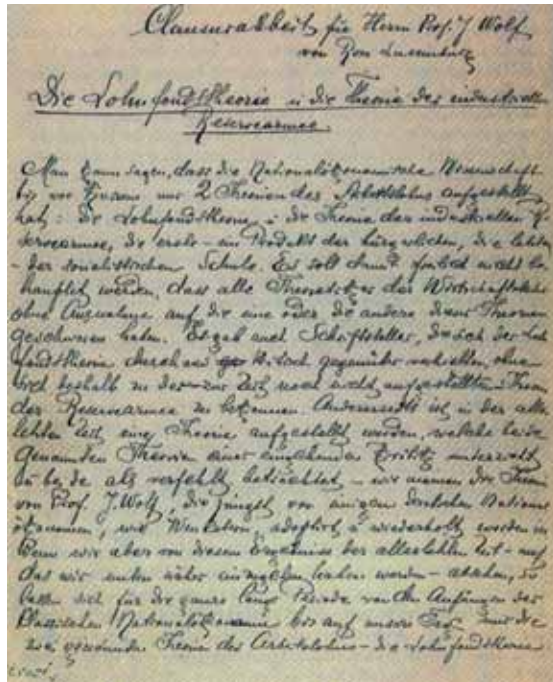 Clausurarbeit für Herrn Prof. J Wolf
von Rosa Luxemburg
Die Lohnfondstheorie u die Theorie der industriellen
Reservearmee.
Man kann sagen, dass die Nationalökonomische Wissenschaft
bis vor Kurzem nur 2 Theorien des Arbeitslohns aufgestellt
hat: die Lohnfondstheorie u die Theorie der industriellen Re-
servearmee, die erste – ein Produkt der bürgerlichen, die letzte
– der sozialistischen Schule. Es soll damit nicht be-
hauptet werden, dass alle Theoretiker der Wirtschaftslehre
ohne Ausnahme auf die eine oder die andere dieser Theorien
geschworen haben. Es gab auch Schriftsteller, die sich der Lohn-
fondstheorie durchaus kritisch gegenüber verhielten, ohne
sich deshalb zu der – zur Zeit noch nicht aufgestellten – Theorie
der Reservearmee zu bekennen. Anderseits ist in der aller-
letzten Zeit eine Theorie aufgestellt worden, welche beide
genannten Theorien einer eingehenden Kritik unterzieht
u beide als verfehlt betrachtet – wir meinen die Theorie
von Prof. J. Wolf, die jüngst von einigen deutschen National-
ökonomen, wie adoptirt u wiederholt worden ist
Wenn wir aber von diesem Ergebniss der allerletzten Zeit – auf
das wir unten näher einzugehen haben werden – absehen, so
lassen sich für die ganze lange Periode von den Anfängen der
klassischen Nationalökonomie bis auf unsere Tage nur die
zwei genannten Theorien des Arbeitslohns – die Lohnfondstheorie